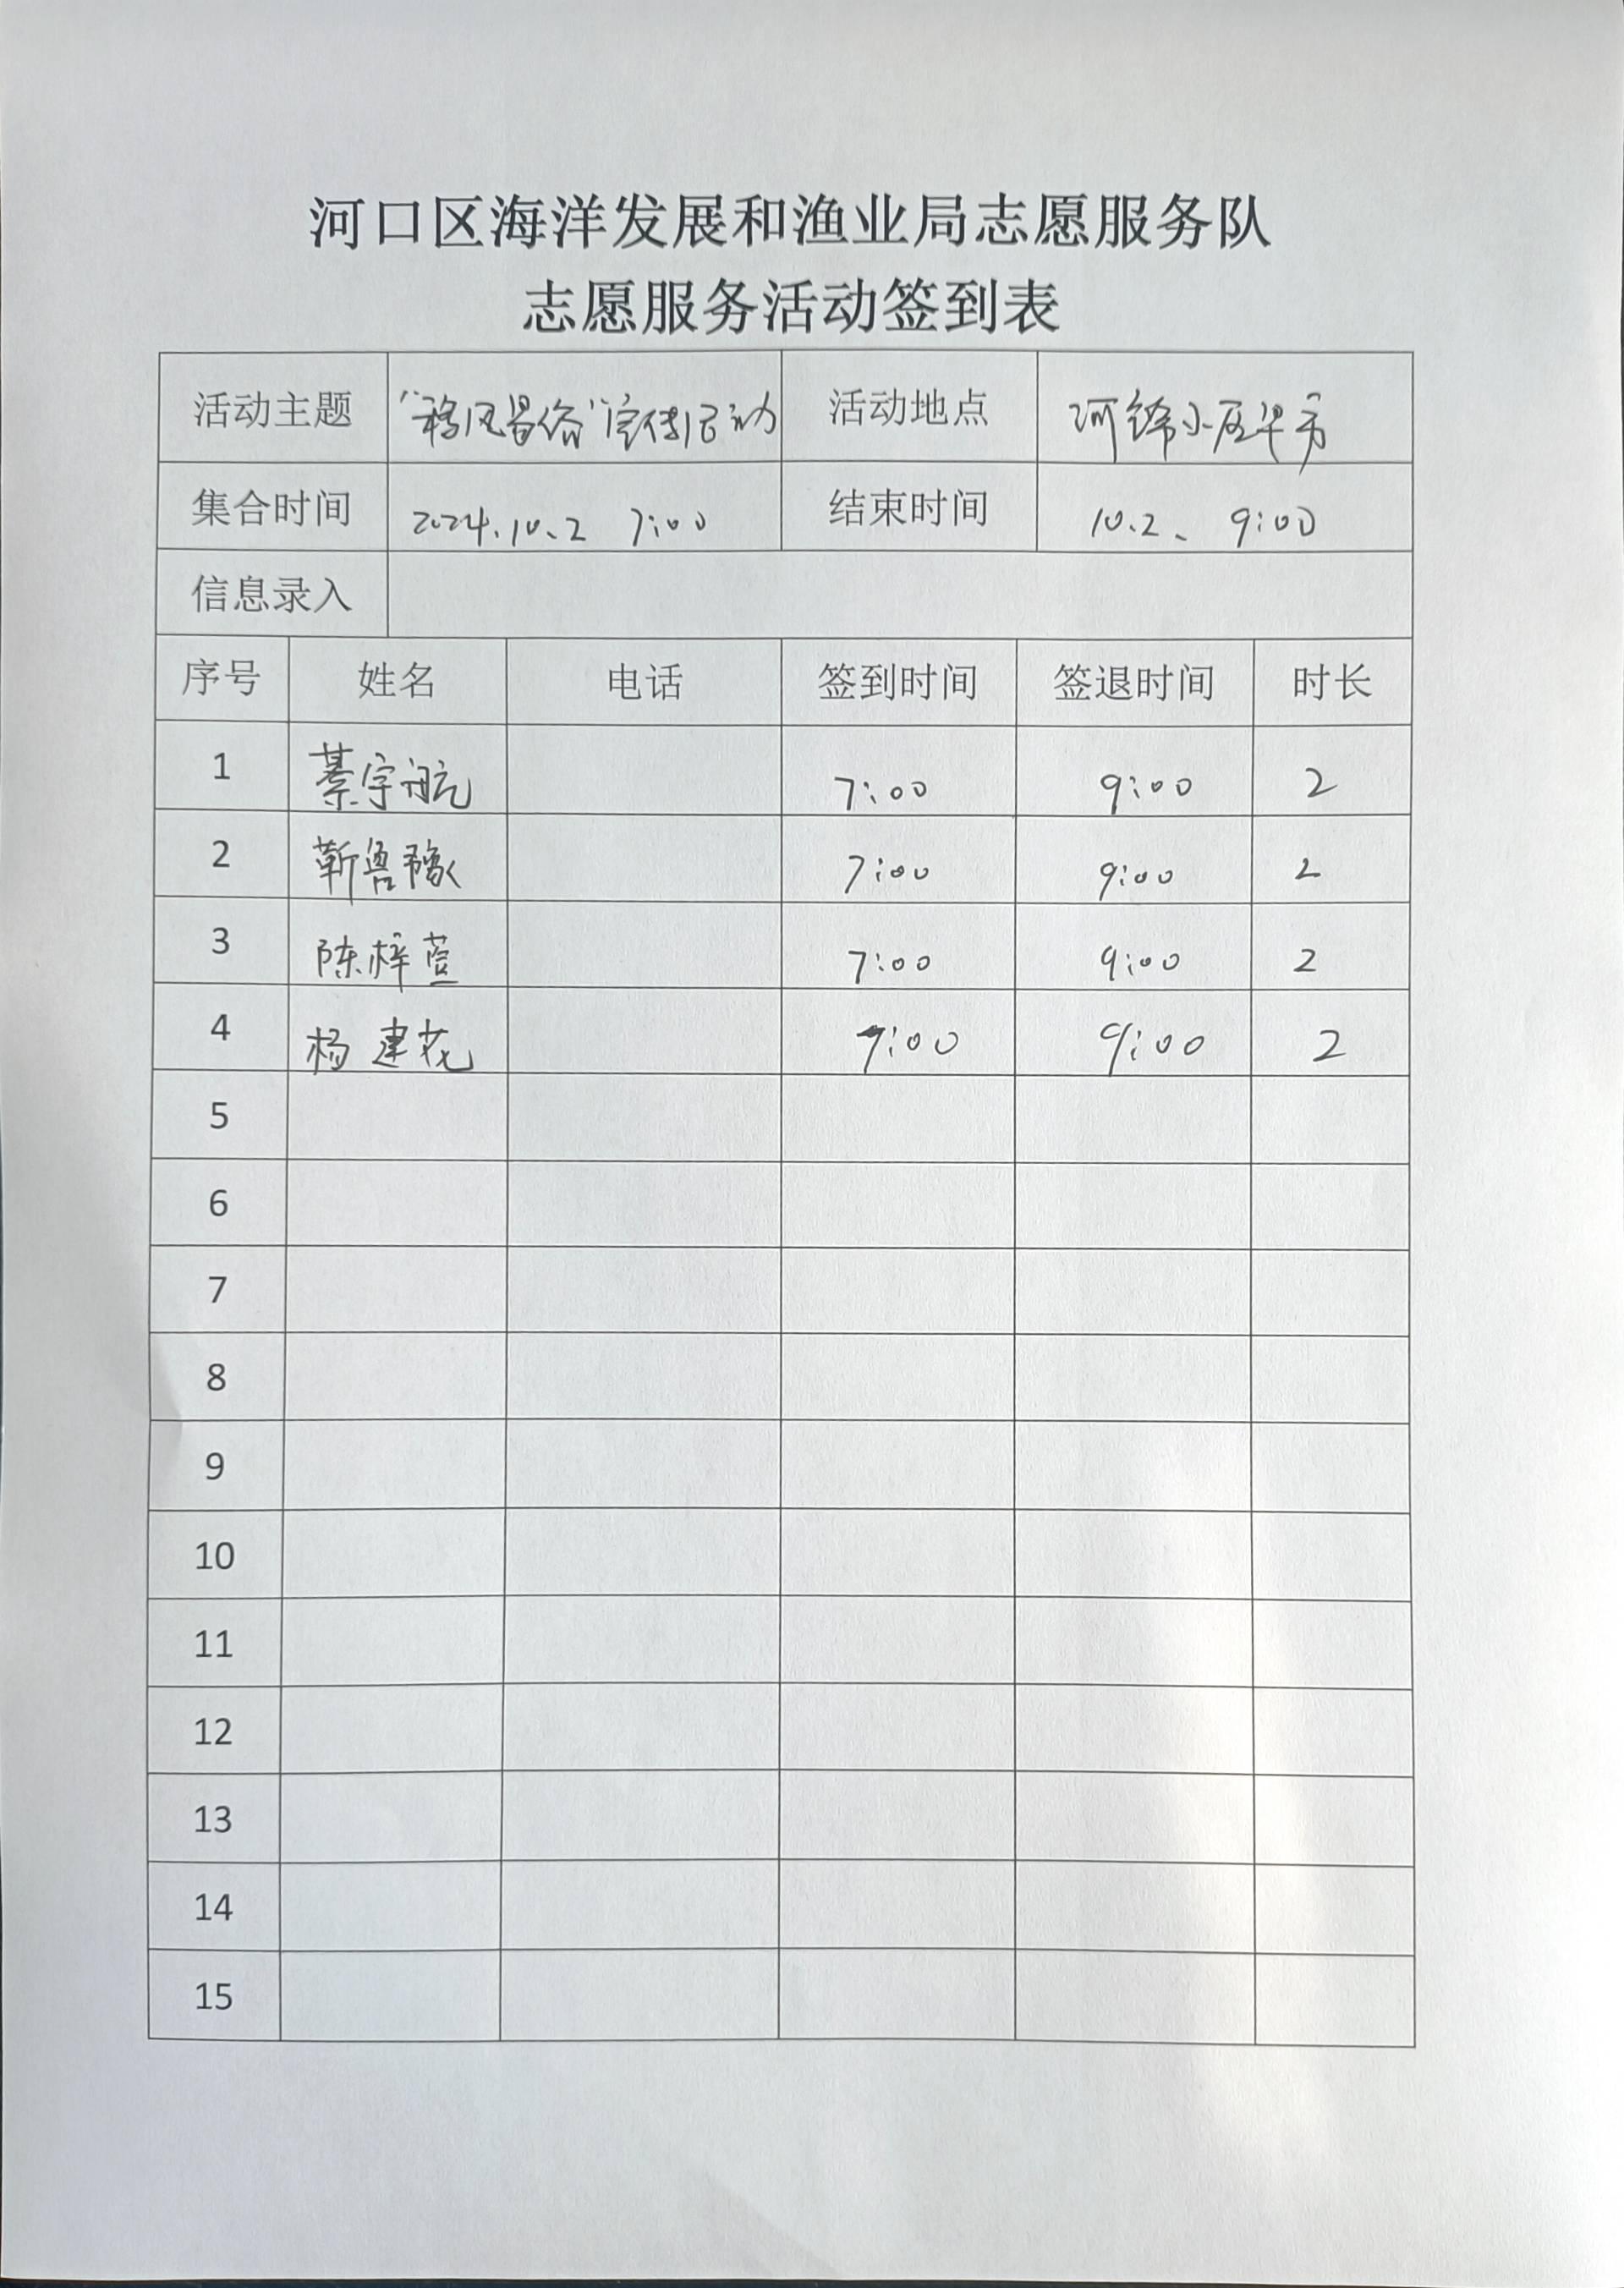 河口区海洋发展和渔业局志愿服务队
志愿服务活动签到表
活动主题 "移风易俗"宣传活动 活动地点 河 小区
集合时间 2024.10.2 7:00 结束时间 10.2、 9:00
信息录入
序号 姓名 电话 签到时间 签退时间 时长
1 綦宇航 7:00 9:00 2
2 靳鲁豫 7:00 9:00 2
3 陈梓萱 7:00 9:00 2
4 杨建花 7:00 9:00 2
5
6
7
8
9
10
11
12
13
14
15